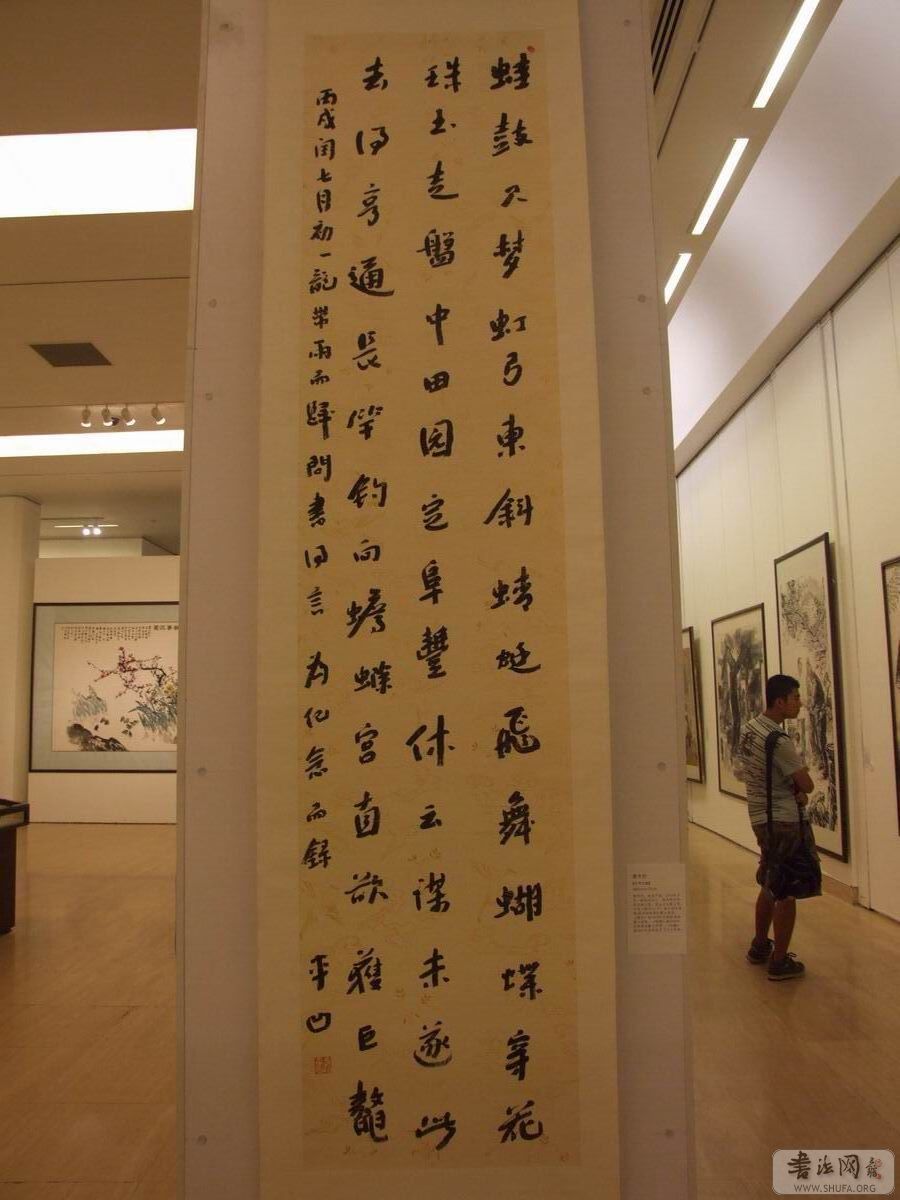 蛙鼓梦虹弓東斜蜻蜓飛舞蝴蝶穿花
珠玉走盤中田园定阜豐休云谋未遂此
去得亨通長竿钓向蟾蜍宫直欲獲巨鼇
丙戌闰七月初一龍帶雨而歸問書得言为纪念而録 平凹
書法网
WWW.SHUFA.ORG